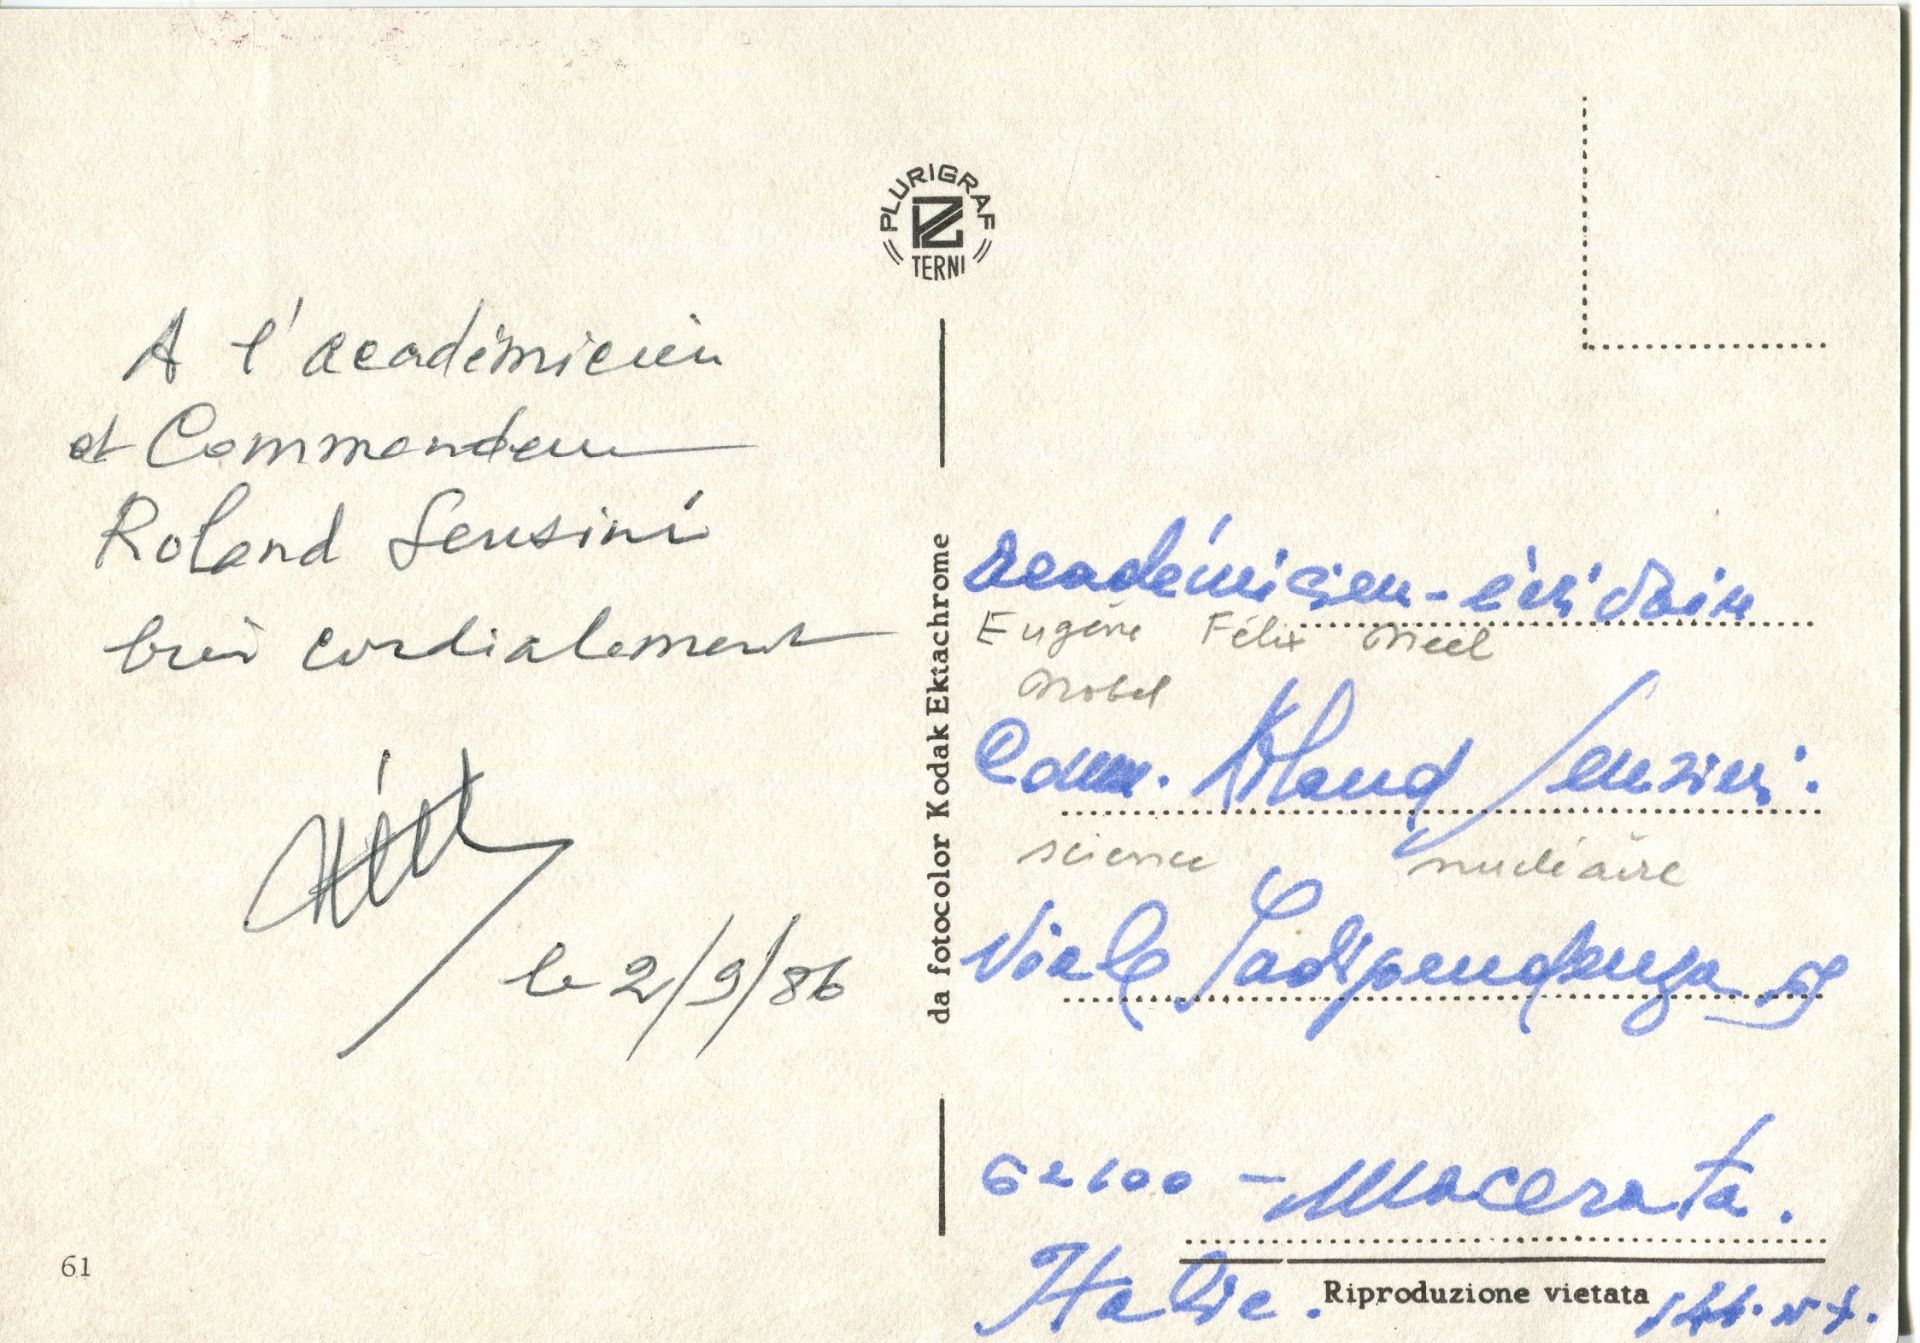 PLURIGRAF
TERNI
A l'académicien
et Commandeur
Roland Sensini
très cordialement
le 2/9/86
61
da fotocolor Kodak Ektachrome
académicien - écrivain
Eugène Félix Néel
Nobel
Comm. Roland Sensini.
science nucléaire
Viale Indipendenza
62100 - Macerata.
Italie.
Riproduzione vietata